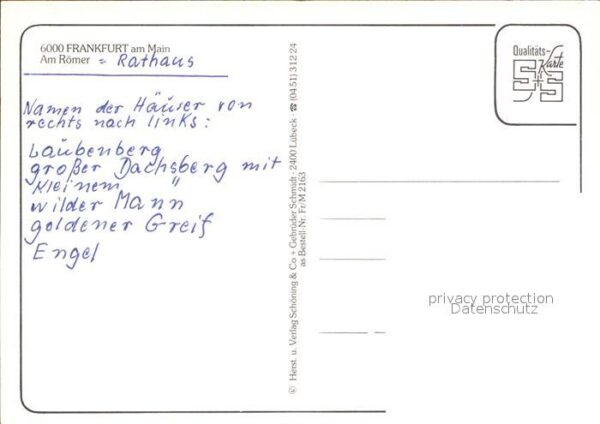 6000 FRANKFURT am Main
Am Römer = Rathaus
Namen der Häuser von
rechts nach links:
Laubenberg
großer Dachsberg mit
kleinem "
wilder Mann
goldener Greif
Engel
© Herst. u. Verlag Schöning & Co + Gebrüder Schmidt · 2400 Lübeck · ☎ (04 51) 3 12 24
as Bestell-Nr. Fr/M 2163
Qualitäts-
Karte
S+S
privacy protection
Datenschutz